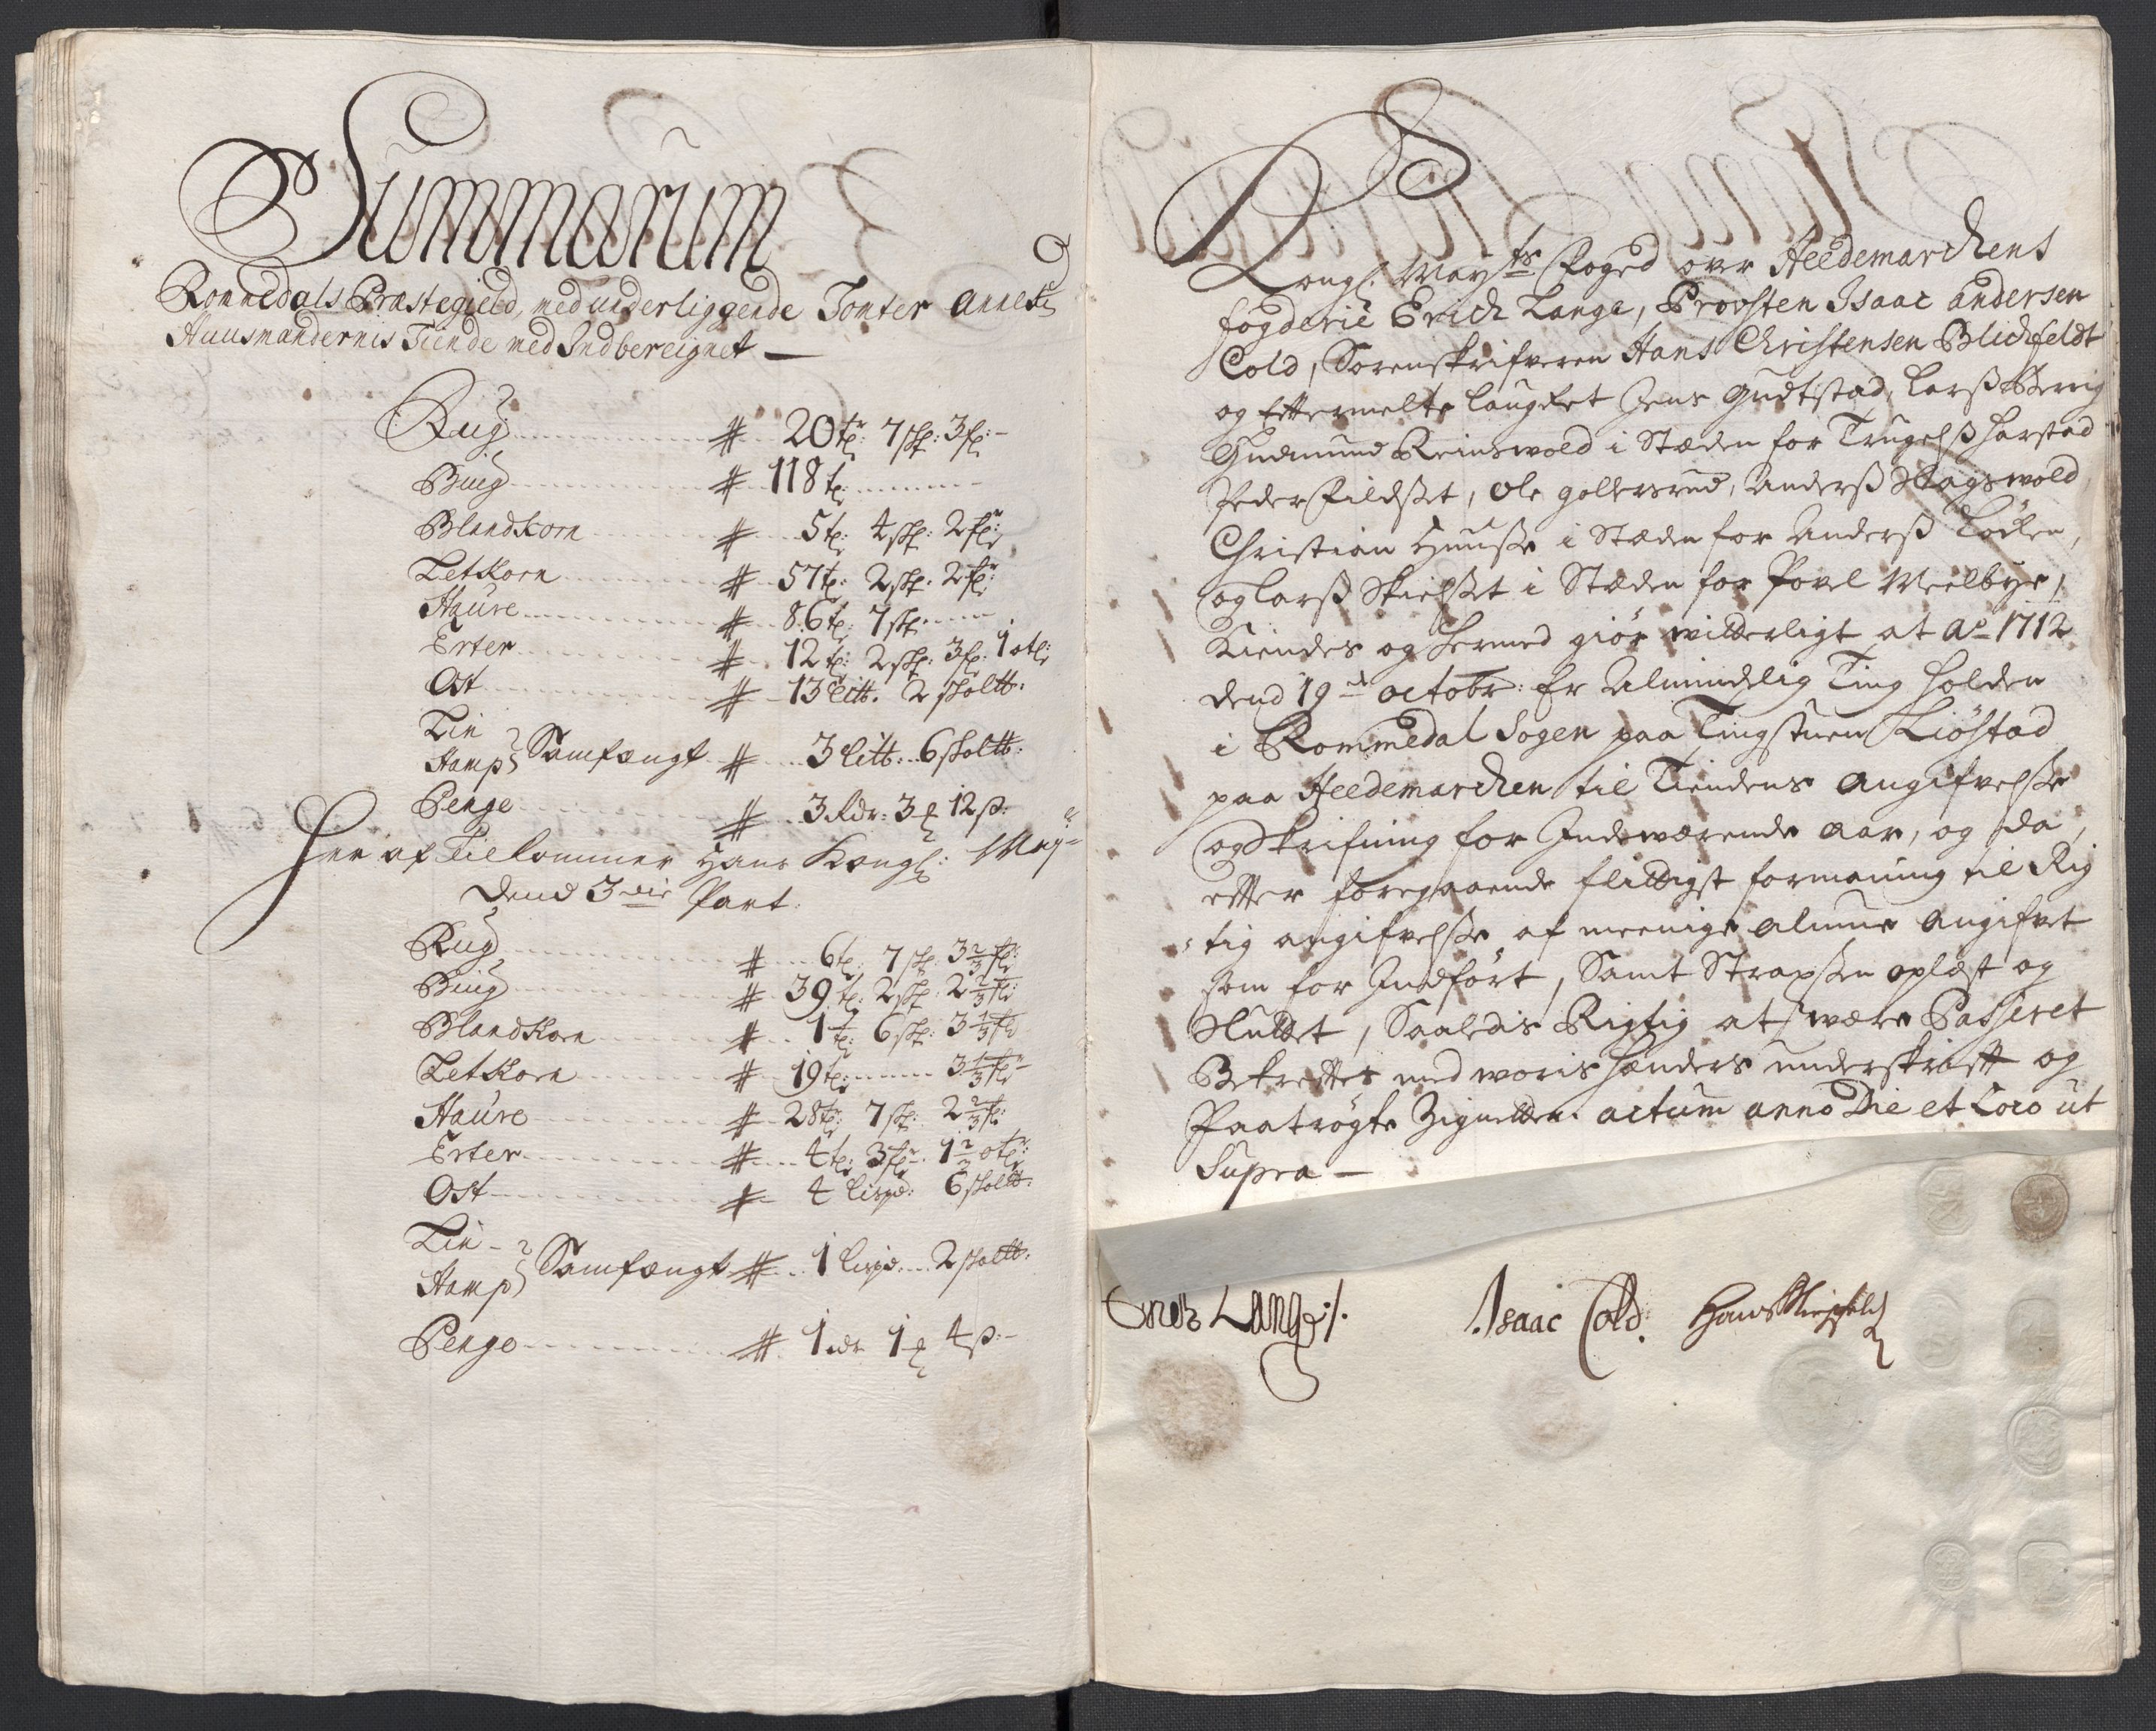 Summarum
Rommedals Præstegield, med underliggende Tomter
Huusmandernis Tiinde med Indbereignet —
Rug # 20 tr 7 skp: 3 fr:
Biug # 118 tr:
Blandkorn # 5 tr: 4 skp: 2 fr:
Letkorn # 57 tr: 2 skp: 2 fr:
Haure # 86 tr: 7 skp:
Erter # 12 tr: 2 skp: 3 fr: 1 otr:
Ost # 13 Litt: 2 skoltt:
Lin
Hamp Samfængt # 3 Litt: 6 skoltt:
Penge # 3 Rdr: 3 ₰ 12 ß:
Her af Tilkommer Hans Kongl: May:
Dend 3die Part:
Rug # 6 tr: 7 skp: 3 2/3 fr:
Biug # 39 tr: 2 skp: 2 2/3 fr:
Blandkorn # 1 tr: 6 skp: 3 1/3 fr
Letkorn # 19 tr: 3 1/3 fr
Haure # 28 tr: 7 skp: 2 2/3 fr:
Erter # 4 tr: 3 fr: 1 2/3 otr:
Ost # 4 Lispd: 6 skoltt:
Lin -
Hamp Samfængt # 1 Lispd: 2 skoltt:
Penge # 1 Rdr 1 ₰ 4 ß: -
Kongl: Mayts Foged over Heedemarchens
fogderie Erich Lange, Provsten Isaac Andersen
Cold, Sorenskrifveren Hans Christensen Blichfeldt
og Eftermelte Laugret Jens Gudtstad, Larß Berrig
Gudmund Reinswold i Stæden for Trugelß Harstad
Peder Fildset, Ole Gollersrud, Anderß Hagswold
Christian Huuse i Stæden for Anderß Løcken,
og Larß Skielset i Stæden for Povel Meelbye,
Kiendes og hermed giør witterligt at Ao 1712
dend 19d octobr: Er Almindelig Ting holden
i Rommedal Sogen paa Tingstuen Kiøstad
paa Heedemarchen til Tiendens Angifvelße
og Skrifning for Indeværende Aar, og da,
efter foregaaende flittigst formaning til Rig
tig angifvelße af meenige Almue Angifvet
som for Indført, Samt Straxsen oplæst og
Sluttet, Saaledis Rigtig at være Passeret
Bekreftes med woris hænders underskrift og
Paatrøgte Zignetter. actum anno Die et Loco ut
Supra —
Erich Lange /.
Isaac Cold.
Hans Blichfeldt